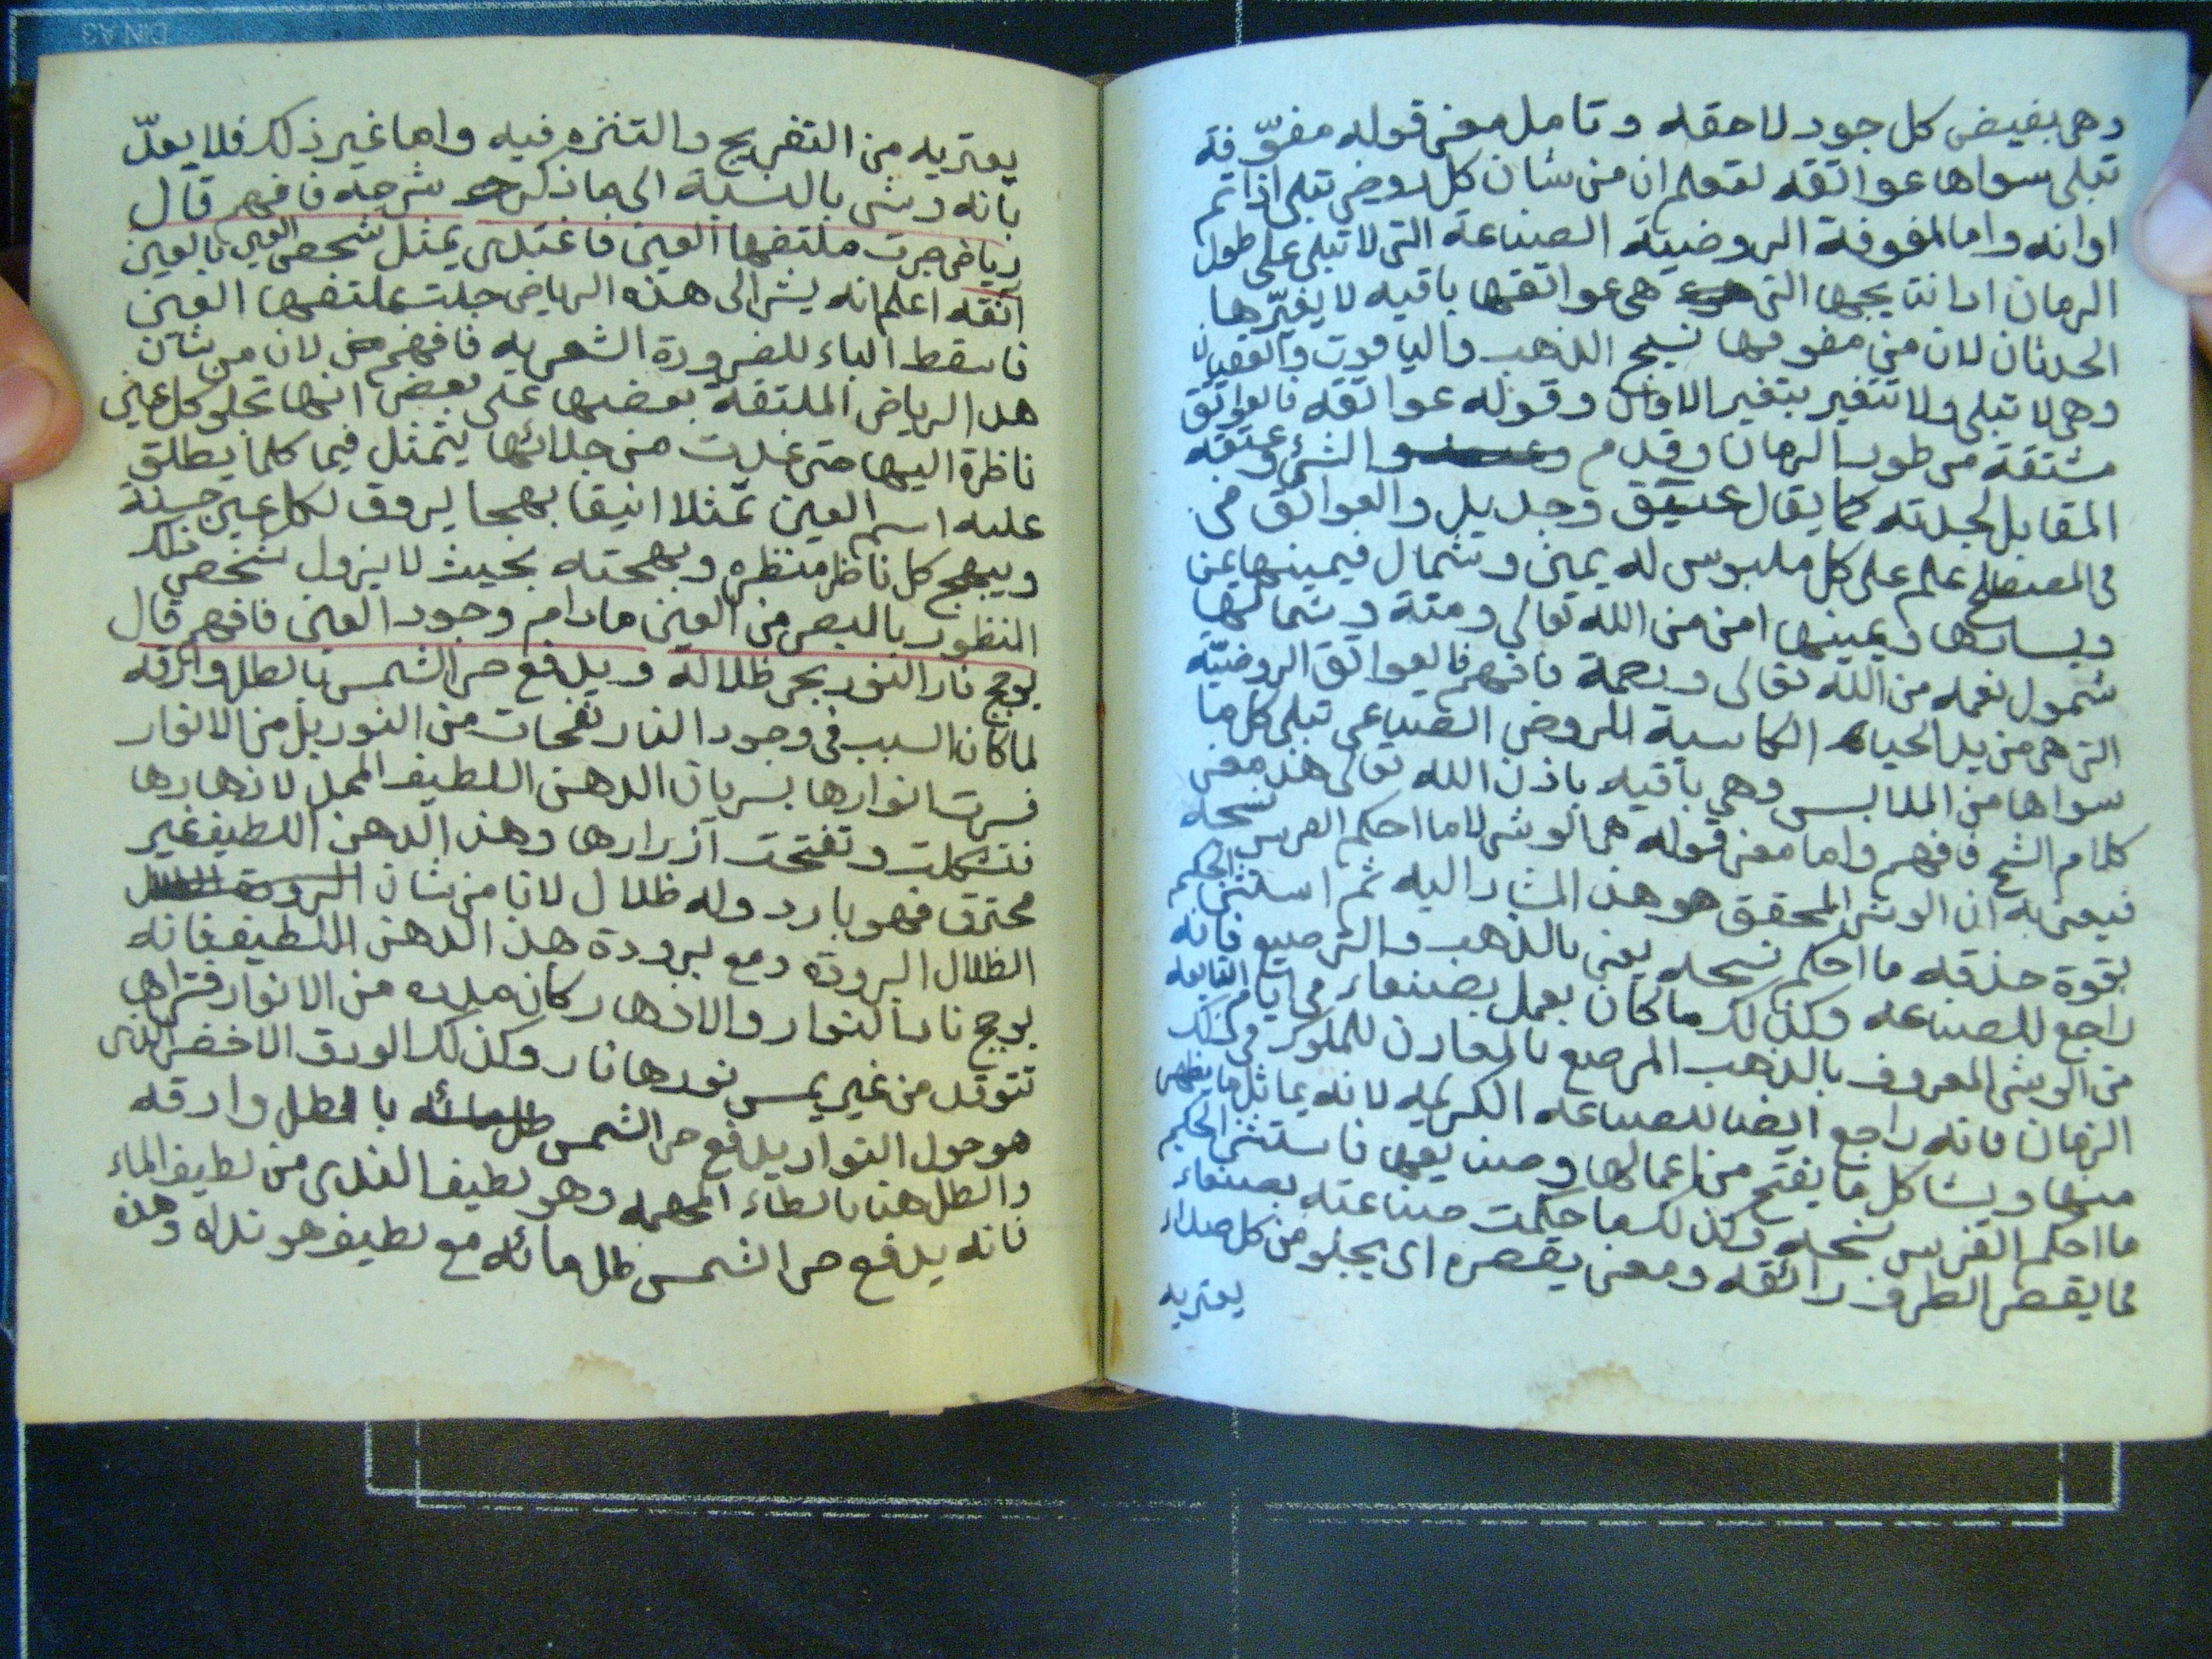 وهي بفيض كل جود لاحقه وتامل معنى قوله مفوّفة
تبلى سواها عواتقه لتعلم ان من شان كل روض تبلى اذا تم
اوانه واما المفوفة الروضية الصناعة التى لا تبلى على طول
الزمان اذا نتايجها التى هى عواتقها باقيه لا يغيّرها
الحدثان لان من مفوفها نسيج الذهب والياقوت والعقيان
وهى لا تبلى ولا تتغير بتغير الاوان وقوله عواتقه فالعواتق
مشتقة من طول الزمان وقدم الشئ وعتقه
المقابل لجدته كما يقال عتيق وجديد والعواتق فى
المصطلح علم على كل ملبوس له يمين وشمال فيمينها يمن
ويسارها ويمينها امن من الله تعالى ومنة وشمالها
شمول نعمه من الله تعالى ورحمة فافهم فالعواتق الروضيّة
التى هى من يد الحياه الكاسية للروض الصناعى تبلى كل ما
سواها من الملابس وهي باقيه باذن الله تعالى هذا معنى
كلام الشيخ فافهم واما معنى قوله هى الوشى لا ما احكم الفرس نسجه
فيعنى به ان الوشى المحقق هو هذا المشار اليه ثم استثنى الحكيم
بقوة حذقه ما احكم نسجه يعنى بالذهب والترصيع فانه
راجع للصناعه وكذلك ما كان يعمل بصنعاء فى ايام التبابعه
من الوشى المعروف بالذهب المرصع بالمعادن للملوك فى ذلك
الزمان فانه راجع ايضا للصناعه الكريمه لانه يماثل ما يظهر
منها ويشاكل ما يفتح من اعمالها وصنايعها فاستثنى الحكيم
ما احكم الفرس نسجه وكذلك ما حكمت صناعته بصنعاء
مما يقصر الطرف رائقه ومعنى يقصره اى يجلو من كل صداء
يعتريه
يعتريه من التفريج والتنزه فيه واما غير ذلك فلا يعدّ
بانه وشى بالنسبة الى ما ذكر شرحه فافهم قال
رياض جرت ملتفها العين فاغتدى يمثل شخص العين بالعين
آنقه اعلم انه يشر الى هذه الرياض جلت بملتفها العين
فاسقط الباء للضرورة الشعريه فافهم لان من شآن
هذا الرياض الملتفة بعضها على بعض انها تجلو كل عين
ناظرة اليها حتى غدت من جلائها يتمثل فيما كلما يطلق
عليه اسم العين تمثلا انيقا بهجا يروق لكل عين حسنة
ويبهج كل ناظر منظره وبهجته بحيث لا يزول شخص ذلك
النظور بالبصر من العين ما دام وجود العين فافهم قال
يوجج نار النور بحر ظلاله ويدفع حر الشمس بالطل وارقه
لما كان السبب فى وجود النار نفحات من النور بل من الانوار
فسرت انوارها بسريان الدهن اللطيف الممد لازهارها
فتشكلت وتفتحت آزرارها وهذا الدهن اللطيف غير
محترق فهو بارد وله ظلال لانا من شان
الظلال البرودة ومع برودة هذا الدهن اللطيف فانه
يوجج نار النوار والازهار كان مدده من الانوار فتراها
تتوقد من غير يمس نورها نار وكذلك الورق الاخضر الذى
هو حول النوار يدفع حر الشمس بالطل وارقه
والطل هنا بالطاء المهمله وهو لطيف الندى من لطيف الماء
فانه يدفع حر الشمس طل مائه مع لطيف هو نداه وهذه